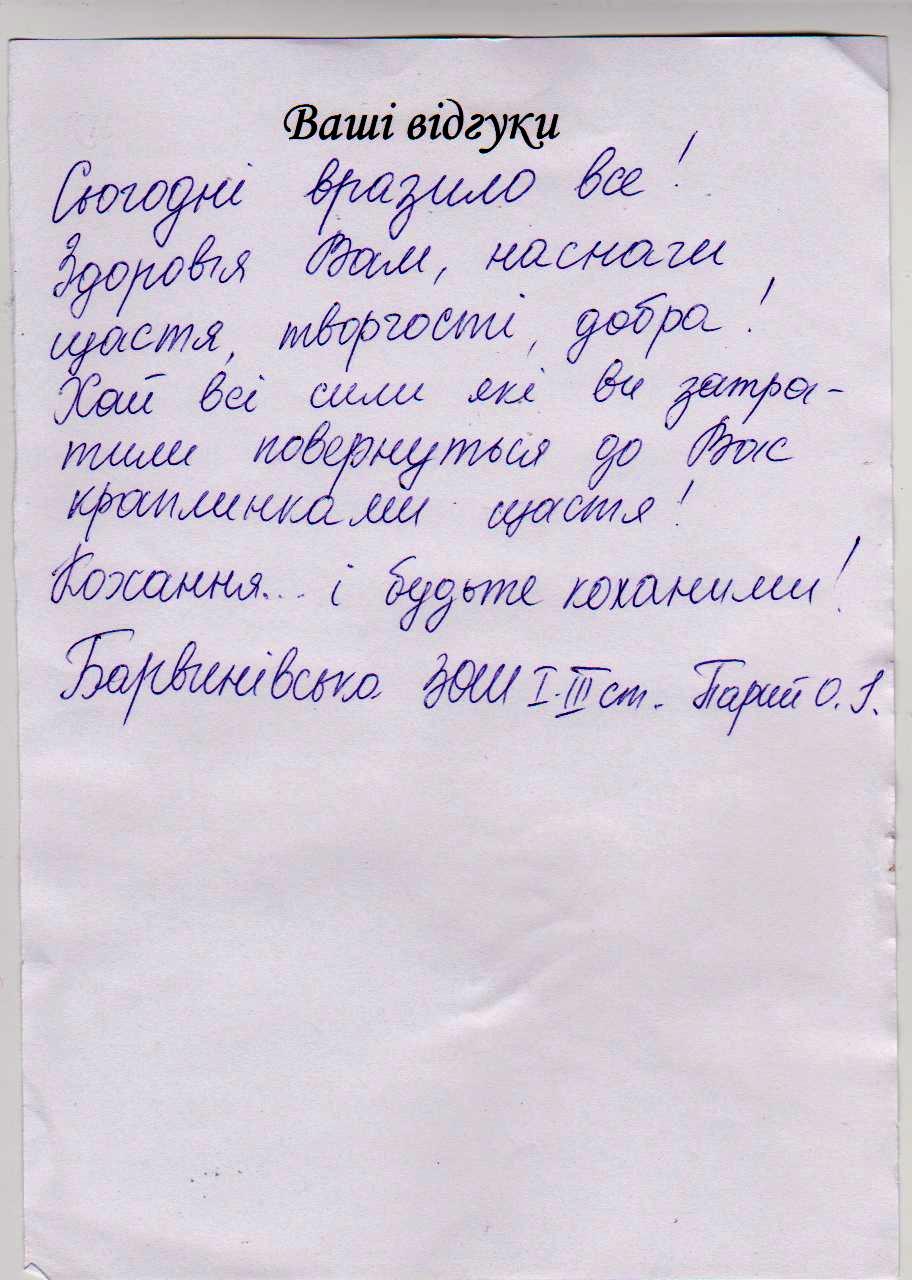 Ваші відгуки
Сьогодні вразило все!
Здоров'я Вам, наснаги
щастя, творчості, добра!
Хай всі сили які ви затра-
тили повернуться до Вас
краплинками щастя!
Кохання... і будьте коханими!
Барвинівська ЗОШ І-ІІІ ст. Парий О. І.